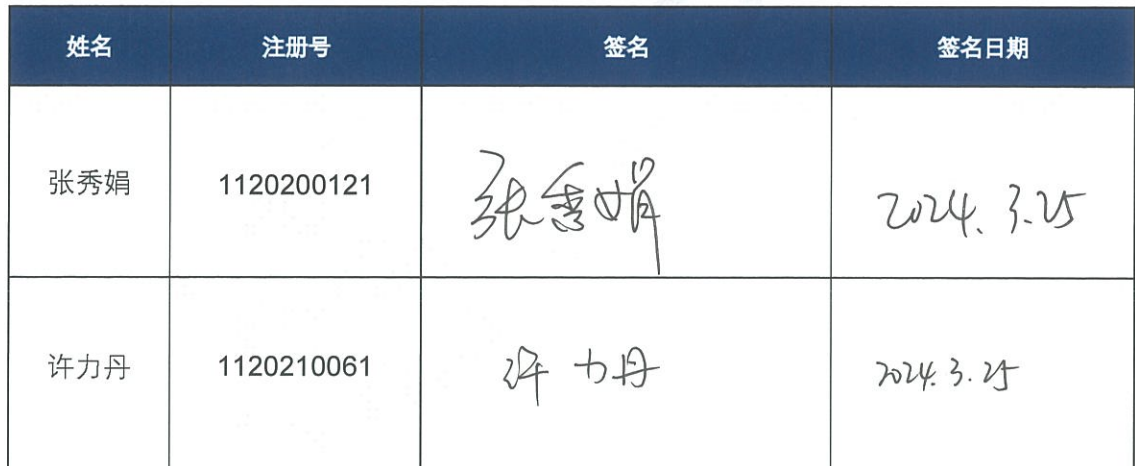 姓名 注册号 签名 签名日期
张秀娟 1120200121 张秀娟 2024.3.25
许力丹 1120210061 许力丹 2024.3.25